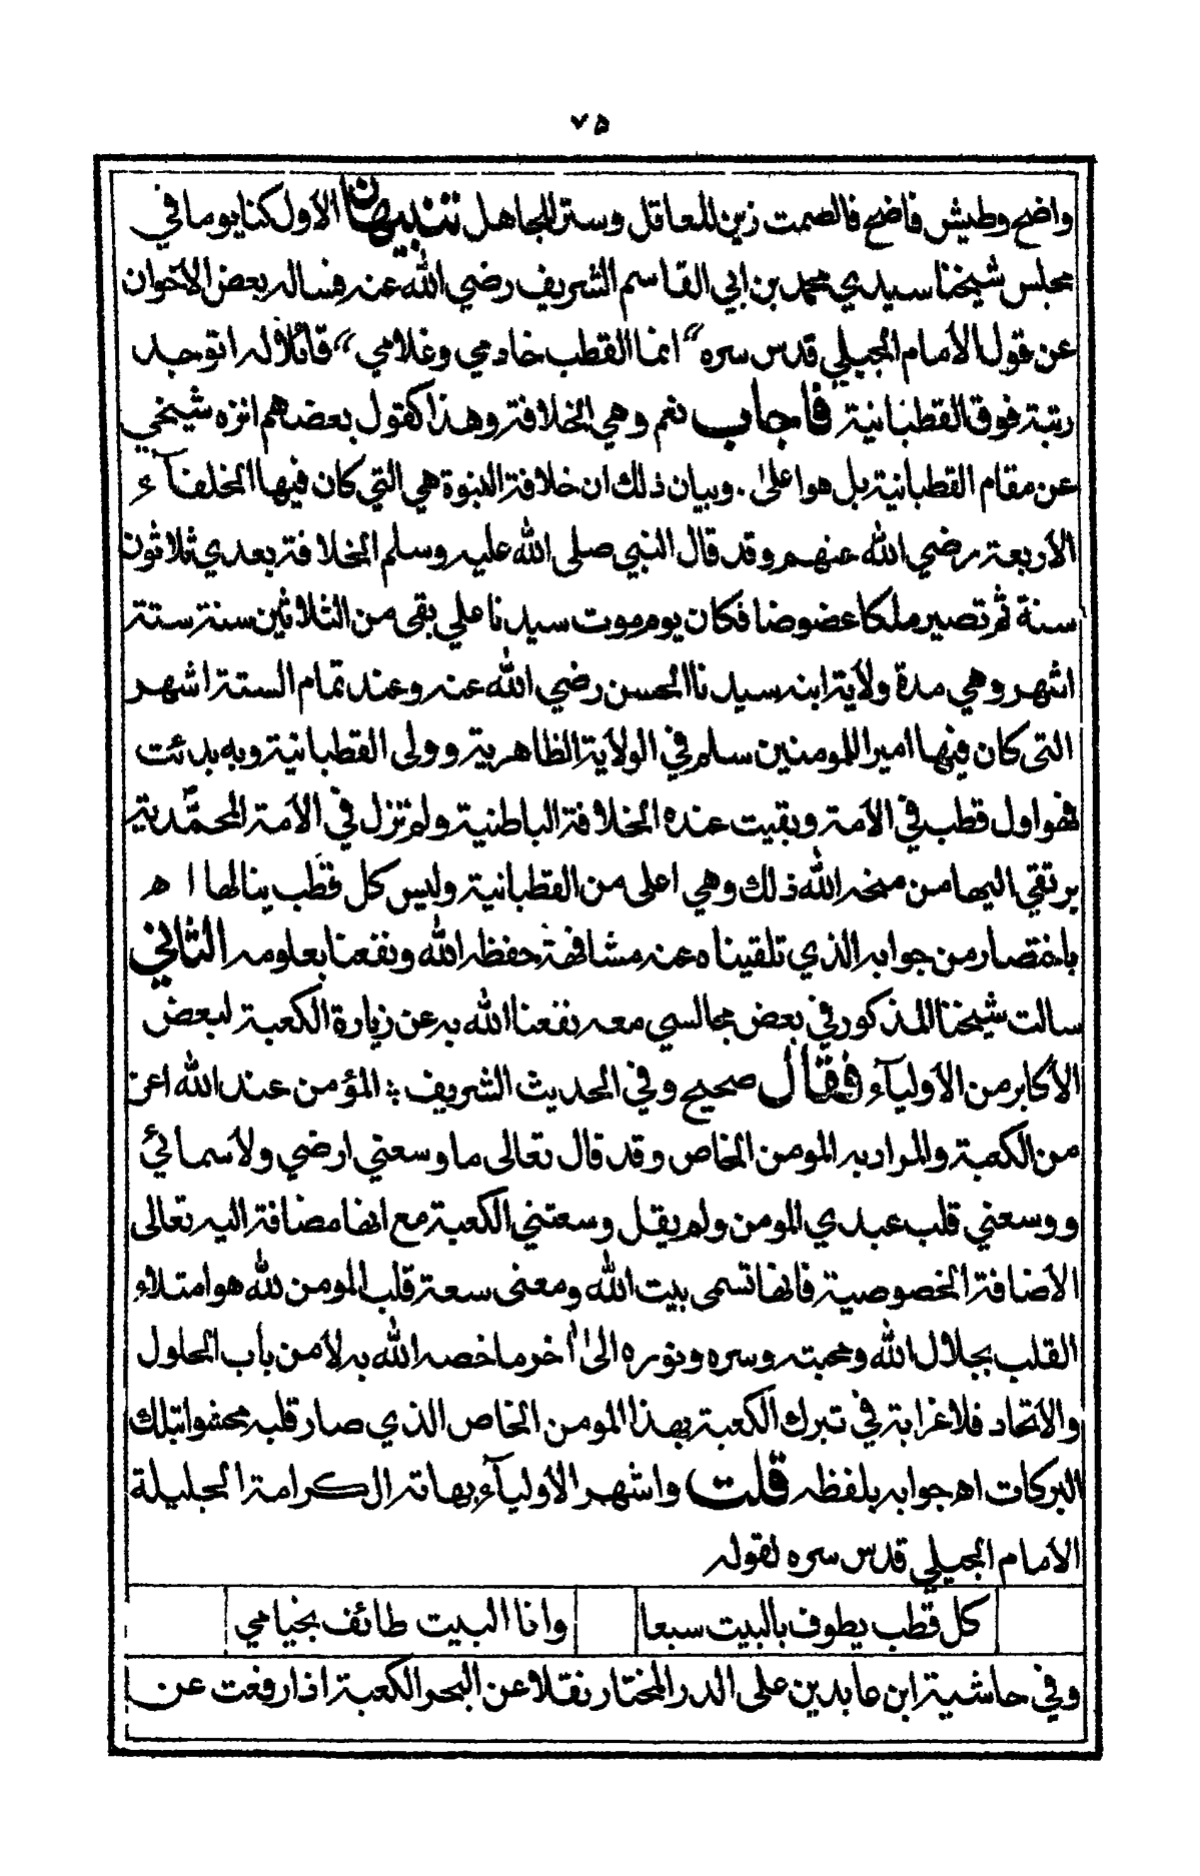 ٧٥
واضح وطيش فاضح فالصمت زين للعاقل وستر للجاهل تنبيهان الأول كنا يوما في
مجلس شيخنا سيدي محمد بن ابي القاسم الشريف رضي الله عنه فساله بعض الأخوان
عن قول الأمام الجيلي قدس سره "انما القطب خادمي وغلامي" قائلا له اتوجد
رتبة فوق القطبانية فاجاب نعم وهي الخلافة وهذا كقول بعضهم انزه شيخي
عن مقام القطبانية بل هو اعلى . وبيان ذلك ان خلافة النبوة هي التي كان فيها الخلفآء
الأربعة رضي الله عنهم وقد قال النبي صلى الله عليه وسلم الخلافة بعدي ثلاثون
سنة ثم تصير ملكا عضوضا فكان يوم موت سيدنا علي بقى من الثلاثين سنة ستة
اشهر وهي مدة ولأية ابنه سيدنا الحسن رضي الله عنه وعند تمام الستة اشهر
التى كان فيها امير المومنين سلم في الولاية الظاهرية وولى القطبانية وبه بدئت
فهو اول قطب في الأمة وبقيت عنده الخلافة الباطنية ولم تزل في الأمة المحمَّدية
يرتقي اليها من منحه الله ذلك وهي اعلى من القطبانية وليس كل قطب ينالها ا ه
باختصار من جوابه الذي تلقيناه عنه مشافهة حفظه الله ونفعنا بعلومه الثاني
سالت شيخنا المذكور في بعض مجالسي معه نفعنا الله به عن زيارة الكعبة لبعض
الأكابر من الأوليآء فقال صحيح وفي الحديث الشريف : المؤمن عند الله اعز
من الكعبة والمراد به المومن الخاص وقد قال تعالى ما وسعني ارضي ولأسمائي
ووسعني قلب عبدي المومن ولم يقل وسعتني الكعبة مع انها مضافة اليه تعالى
الأضافة الخصوصية فانها تسمى بيت الله ومعنى سعة قلب المومن لله هو امتلاء
القلب بجلال الله ومحبته وسره ونوره الى أخر ما خصه الله به لأمن باب الحلول
والأتحاد فلا غرابة في تبرك الكعبة بهذا المومن الخاص الذي صار قلبه محشوا بتلك
البركات اه جوابه بلفظه قلت واشهر الأوليآء بهاته الكرامة الجليلة
الأمام الجيلي قدس سره لقوله
كل قطب يطوف بالبيت سبعا وانا البيت طائف بخيامي
وفي حاشية ابن عابدين على الدر المختار نقلا عن البحر الكعبة اذا رفعت عن